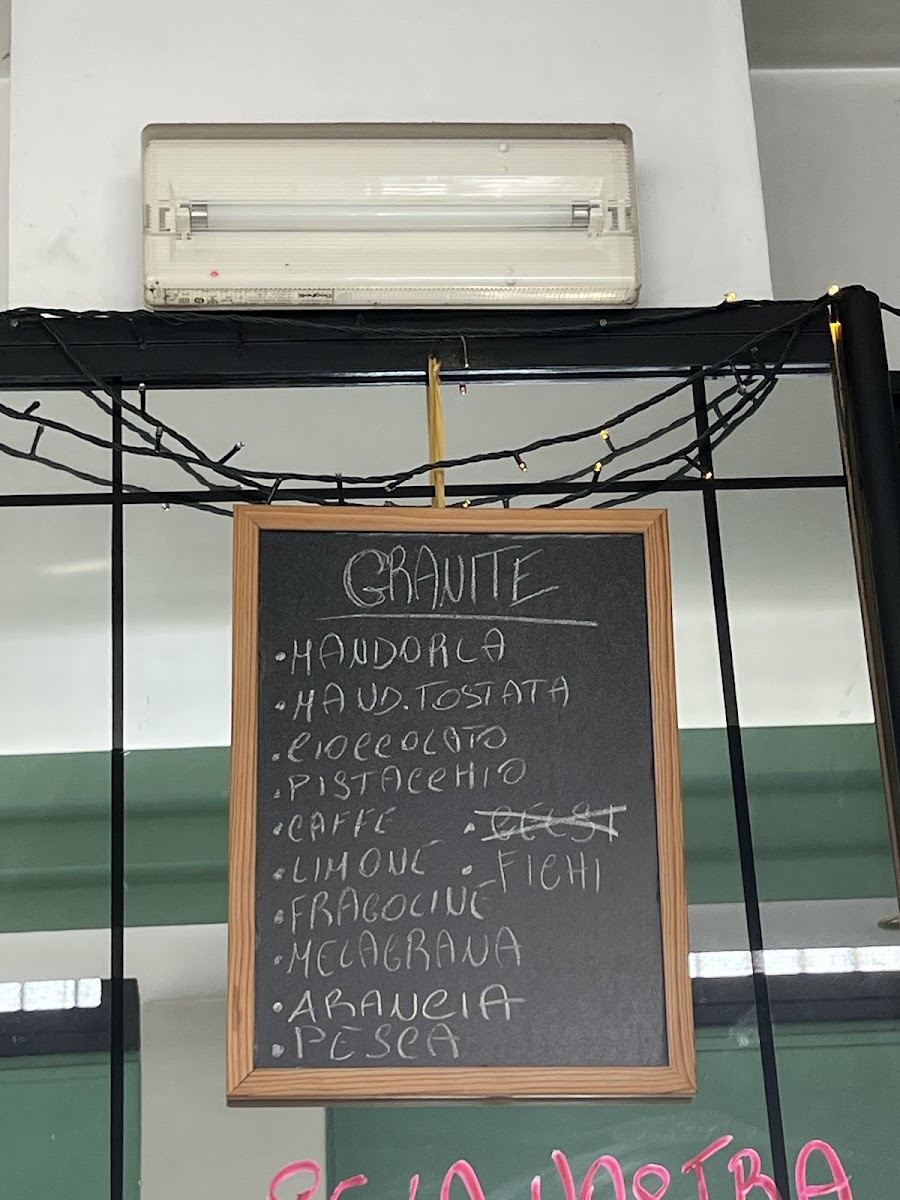 GRANITE
• MANDORLA
• MAND. TOSTATA
• CIOCCOLATO
• PISTACCHIO
• CAFFE
• LIMONE
• FRAGOLINE
• MELAGRANA
• ARANCIA
• PESCA
• GELSI
• FICHI
NOSTRA